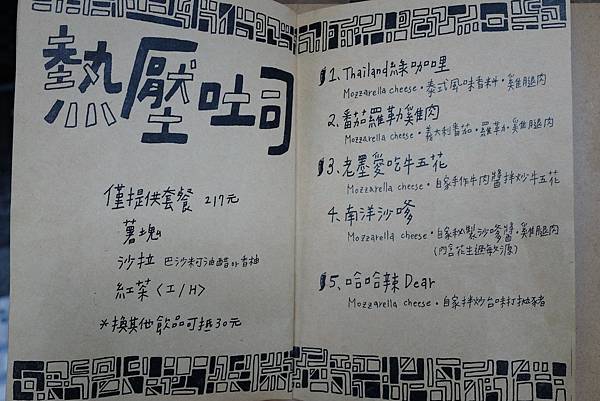 熱壓吐司
僅提供套餐 217元
薯塊
沙拉 巴沙米可油醋
紅茶〈I/H〉
※換其他飲品可抵30元
1、Thailand綠咖哩
Mozzarella cheese・泰式風味香料・雞腿肉
2、番茄羅勒雞肉
Mozzarella cheese・義大利番茄・羅勒・雞腿肉
3、老墨愛吃牛五花
Mozzarella cheese・自家手作牛肉醬拌炒牛五花
4、南洋沙嗲
Mozzarella cheese・自家秘製沙嗲醬・雞腿肉
(內含花生過敏源)
5、哈哈辣 Dear
Mozzarella cheese・自家拌炒台味打拋豬